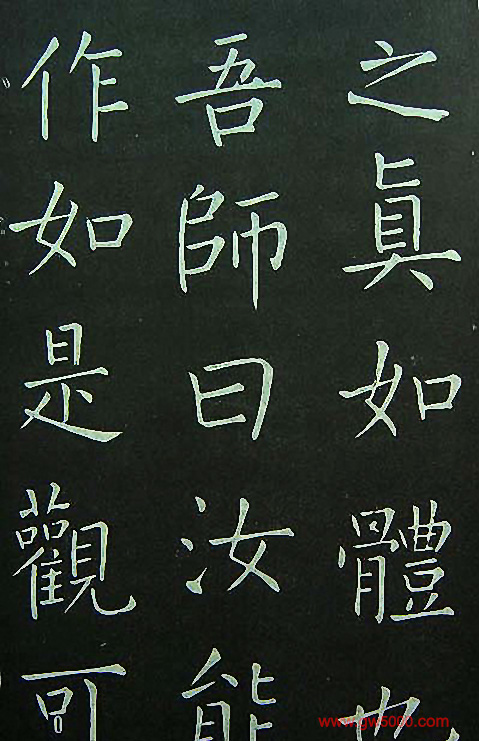 之真如體也
吾師曰汝能
作如是觀可
www.gw5000.com